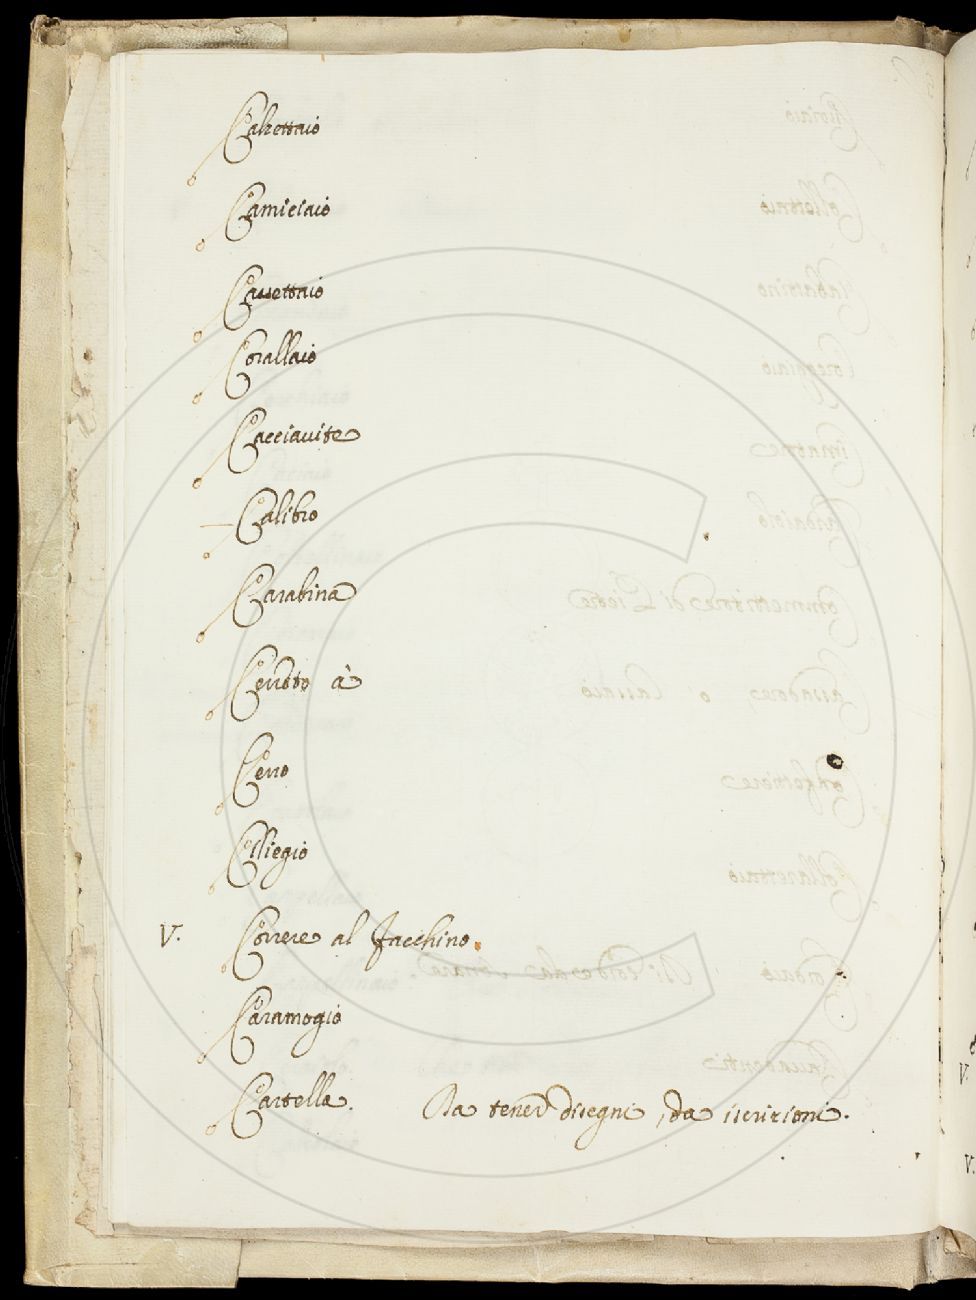 Calzettaio
Camiciaio
Cassettaio
Corallaio
Cacciauite
Calibro
Carabina
Cerretto à
Cerro
Ciliegio
V. Correre al Facchino.
Caramogio
Cartella. Da tener disegni, da iscrizioni.